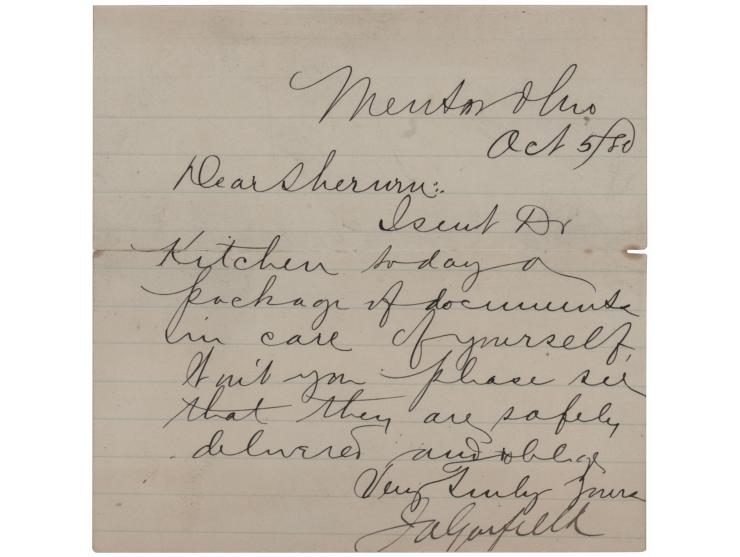 Mentor Ohio
Oct 5/80
Dear Sherwin:
I sent Dr
Kitchen today a
package of documents
in care of yourself,
Won't you please see
that they are safely
delivered and oblige
Very Truly Yours
J A Garfield